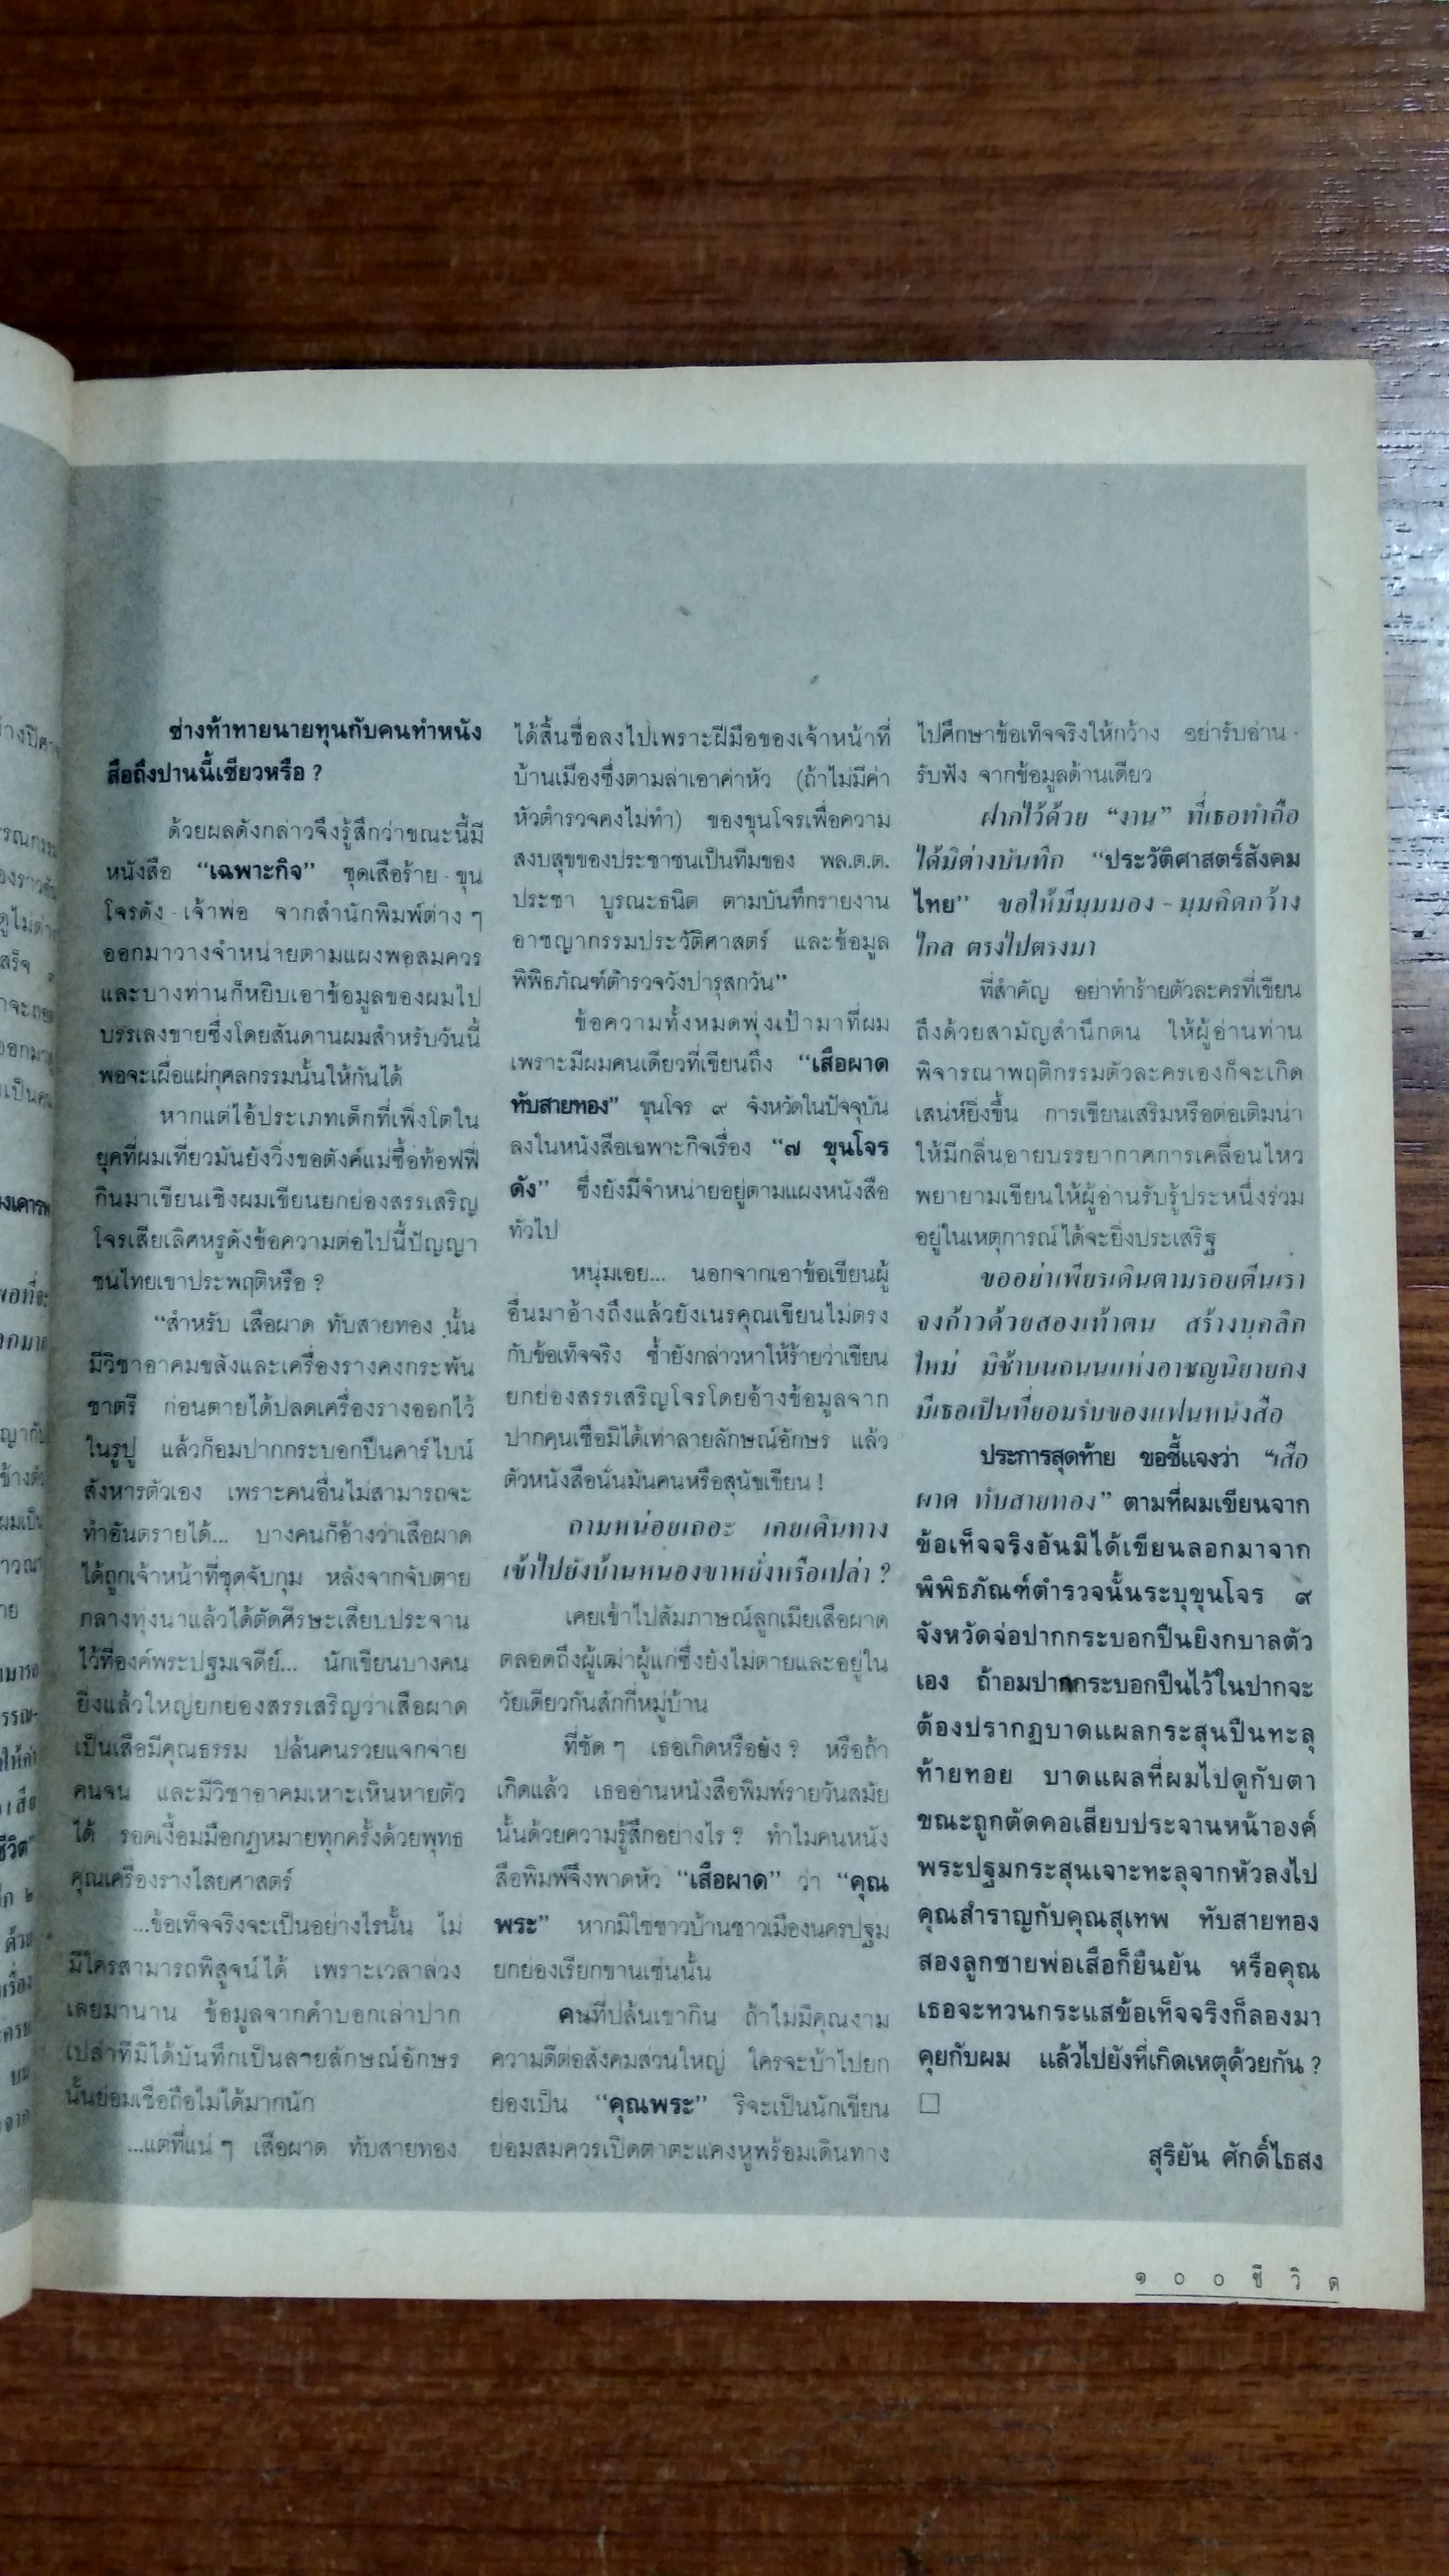 ช่างท้าทายนายทุนกับคนทำหนัง
สือถึงปานนี้เชียวหรือ ?
ด้วยผลดังกล่าวจึงรู้สึกว่าขณะนี้มี
หนังสือ “เฉพาะกิจ” ชุดเสือร้าย - ขุน
โจรดัง - เจ้าพ่อ จากสำนักพิมพ์ต่าง ๆ
ออกมาวางจำหน่ายตามแผงพอสมควร
และบางท่านก็หยิบเอาข้อมูลของผมไป
บรรเลงขายซึ่งโดยสันดานผมสำหรับวันนี้
พอจะเผื่อแผ่กุศลกรรมนั้นให้กันได้
หากแต่ไอ้ประเภทเด็กที่เพิ่งโตใน
ยุคที่ผมเที่ยวมันยังวิ่งขอตังค์แม่ซื้อท้อฟฟี่
กินมาเขียนเชิงผมเขียนยกย่องสรรเสริญ
โจรเสียเลิศหรูดังข้อความต่อไปนี้ปัญญา
ชนไทยเขาประพฤติหรือ ?
“สำหรับ เสือผาด ทับสายทอง นั้น
มีวิชาอาคมขลังและเครื่องรางคงกระพัน
ชาตรี ก่อนตายได้ปลดเครื่องรางออกไว้
ในรูปู แล้วก็อมปากกระบอกปืนคาร์ไบน์
สังหารตัวเอง เพราะคนอื่นไม่สามารถจะ
ทำอันตรายได้... บางคนก็อ้างว่าเสือผาด
ได้ถูกเจ้าหน้าที่ชุดจับกุม หลังจากจับตาย
กลางทุ่งนาแล้วได้ตัดศีรษะเสียบประจาน
ไว้ที่องค์พระปฐมเจดีย์... นักเขียนบางคน
ยิ่งแล้วใหญ่ยกย่องสรรเสริญว่าเสือผาด
เป็นเสือมีคุณธรรม ปล้นคนรวยแจกจ่าย
คนจน และมีวิชาอาคมเหาะเหินหายตัว
ได้ รอดเงื้อมมือกฎหมายทุกครั้งด้วยพุทธ
คุณเครื่องรางไสยศาสตร์
...ข้อเท็จจริงจะเป็นอย่างไรนั้น ไม่
มีใครสามารถพิสูจน์ได้ เพราะเวลาล่วง
เลยมานาน ข้อมูลจากคำบอกเล่าปาก
เปล่าที่มิได้บันทึกเป็นลายลักษณ์อักษร
นั้นย่อมเชื่อถือไม่ได้มากนัก
...แต่ที่แน่ ๆ เสือผาด ทับสายทอง
ได้สิ้นชื่อลงไปเพราะฝีมือของเจ้าหน้าที่
บ้านเมืองซึ่งตามล่าเอาค่าหัว (ถ้าไม่มีค่า
หัวตำรวจคงไม่ทำ) ของขุนโจรเพื่อความ
สงบสุขของประชาชนเป็นทีมของ พล.ต.ต.
ประชา บูรณะธนิต ตามบันทึกรายงาน
อาชญากรรมประวัติศาสตร์ และข้อมูล
พิพิธภัณฑ์ตำรวจวังปารุสกวัน”
ข้อความทั้งหมดพุ่งเป้ามาที่ผม
เพราะมีผมคนเดียวที่เขียนถึง “เสือผาด
ทับสายทอง” ขุนโจร ๙ จังหวัดในปัจจุบัน
ลงในหนังสือเฉพาะกิจเรื่อง “๗ ขุนโจร
ดัง” ซึ่งยังมีจำหน่ายอยู่ตามแผงหนังสือ
ทั่วไป
หนุ่มเอย... นอกจากเอาข้อเขียนผู้
อื่นมาอ้างถึงแล้วยังเนรคุณเขียนไม่ตรง
กับข้อเท็จจริง ซ้ำยังกล่าวหาให้ร้ายว่าเขียน
ยกย่องสรรเสริญโจรโดยอ้างข้อมูลจาก
ปากคนเชื่อมิได้เท่าลายลักษณ์อักษร แล้ว
ตัวหนังสือนั่นมันคนหรือสุนัขเขียน !
ถามหน่อยเถอะ เคยเดินทาง
เข้าไปยังบ้านหนองขาหยั่งหรือเปล่า ?
เคยเข้าไปสัมภาษณ์ลูกเมียเสือผาด
ตลอดถึงผู้เฒ่าผู้แก่ซึ่งยังไม่ตายและอยู่ใน
วัยเดียวกันสักกี่หมู่บ้าน
ที่ชัด ๆ เธอเกิดหรือยัง ? หรือถ้า
เกิดแล้ว เธออ่านหนังสือพิมพ์รายวันสมัย
นั้นด้วยความรู้สึกอย่างไร ? ทำไมคนหนัง
สือพิมพ์จึงพาดหัว “เสือผาด” ว่า “คุณ
พระ” หากมิใช่ชาวบ้านชาวเมืองนครปฐม
ยกย่องเรียกขานเช่นนั้น
คนที่ปล้นเขากิน ถ้าไม่มีคุณงาม
ความดีต่อสังคมส่วนใหญ่ ใครจะบ้าไปยก
ย่องเป็น “คุณพระ” ริจะเป็นนักเขียน
ย่อมสมควรเปิดตาตะแคงหูพร้อมเดินทาง
ไปศึกษาข้อเท็จจริงให้กว้าง อย่ารับอ่าน -
รับฟัง จากข้อมูลด้านเดียว
ฝากไว้ด้วย “งาน” ที่เธอทำถือ
ได้มิต่างบันทึก “ประวัติศาสตร์สังคม
ไทย” ขอให้มีมุมมอง - มุมคิดกว้าง
ไกล ตรงไปตรงมา
ที่สำคัญ อย่าทำร้ายตัวละครที่เขียน
ถึงด้วยสามัญสำนึกตน ให้ผู้อ่านท่าน
พิจารณาพฤติกรรมตัวละครเองก็จะเกิด
เสน่ห์ยิ่งขึ้น การเขียนเสริมหรือต่อเติมน่า
ให้มีกลิ่นอายบรรยากาศการเคลื่อนไหว
พยายามเขียนให้ผู้อ่านรับรู้ประหนึ่งร่วม
อยู่ในเหตุการณ์ได้จะยิ่งประเสริฐ
ขออย่าเพียรเดินตามรอยตีนเรา
จงก้าวด้วยสองเท้าตน สร้างบุคลิก
ใหม่ มิช้าบนถนนแห่งอาชญนิยายคง
มีเธอเป็นที่ยอมรับของแฟนหนังสือ
ประการสุดท้าย ขอชี้แจงว่า “เสือ
ผาด ทับสายทอง” ตามที่ผมเขียนจาก
ข้อเท็จจริงอันมิได้เขียนลอกมาจาก
พิพิธภัณฑ์ตำรวจนั้นระบุขุนโจร ๙
จังหวัดจ่อปากกระบอกปืนยิงกบาลตัว
เอง ถ้าอมปากกระบอกปืนไว้ในปากจะ
ต้องปรากฏบาดแผลกระสุนปืนทะลุ
ท้ายทอย บาดแผลที่ผมไปดูกับตา
ขณะถูกตัดคอเสียบประจานหน้าองค์
พระปฐมกระสุนเจาะทะลุจากหัวลงไป
คุณสำราญกับคุณสุเทพ ทับสายทอง
สองลูกชายพ่อเสือก็ยืนยัน หรือคุณ
เธอจะทวนกระแสข้อเท็จจริงก็ลองมา
คุยกับผม แล้วไปยังที่เกิดเหตุด้วยกัน ?
□
สุริยัน ศักดิ์ไธสง
๑๐๐ชีวิต